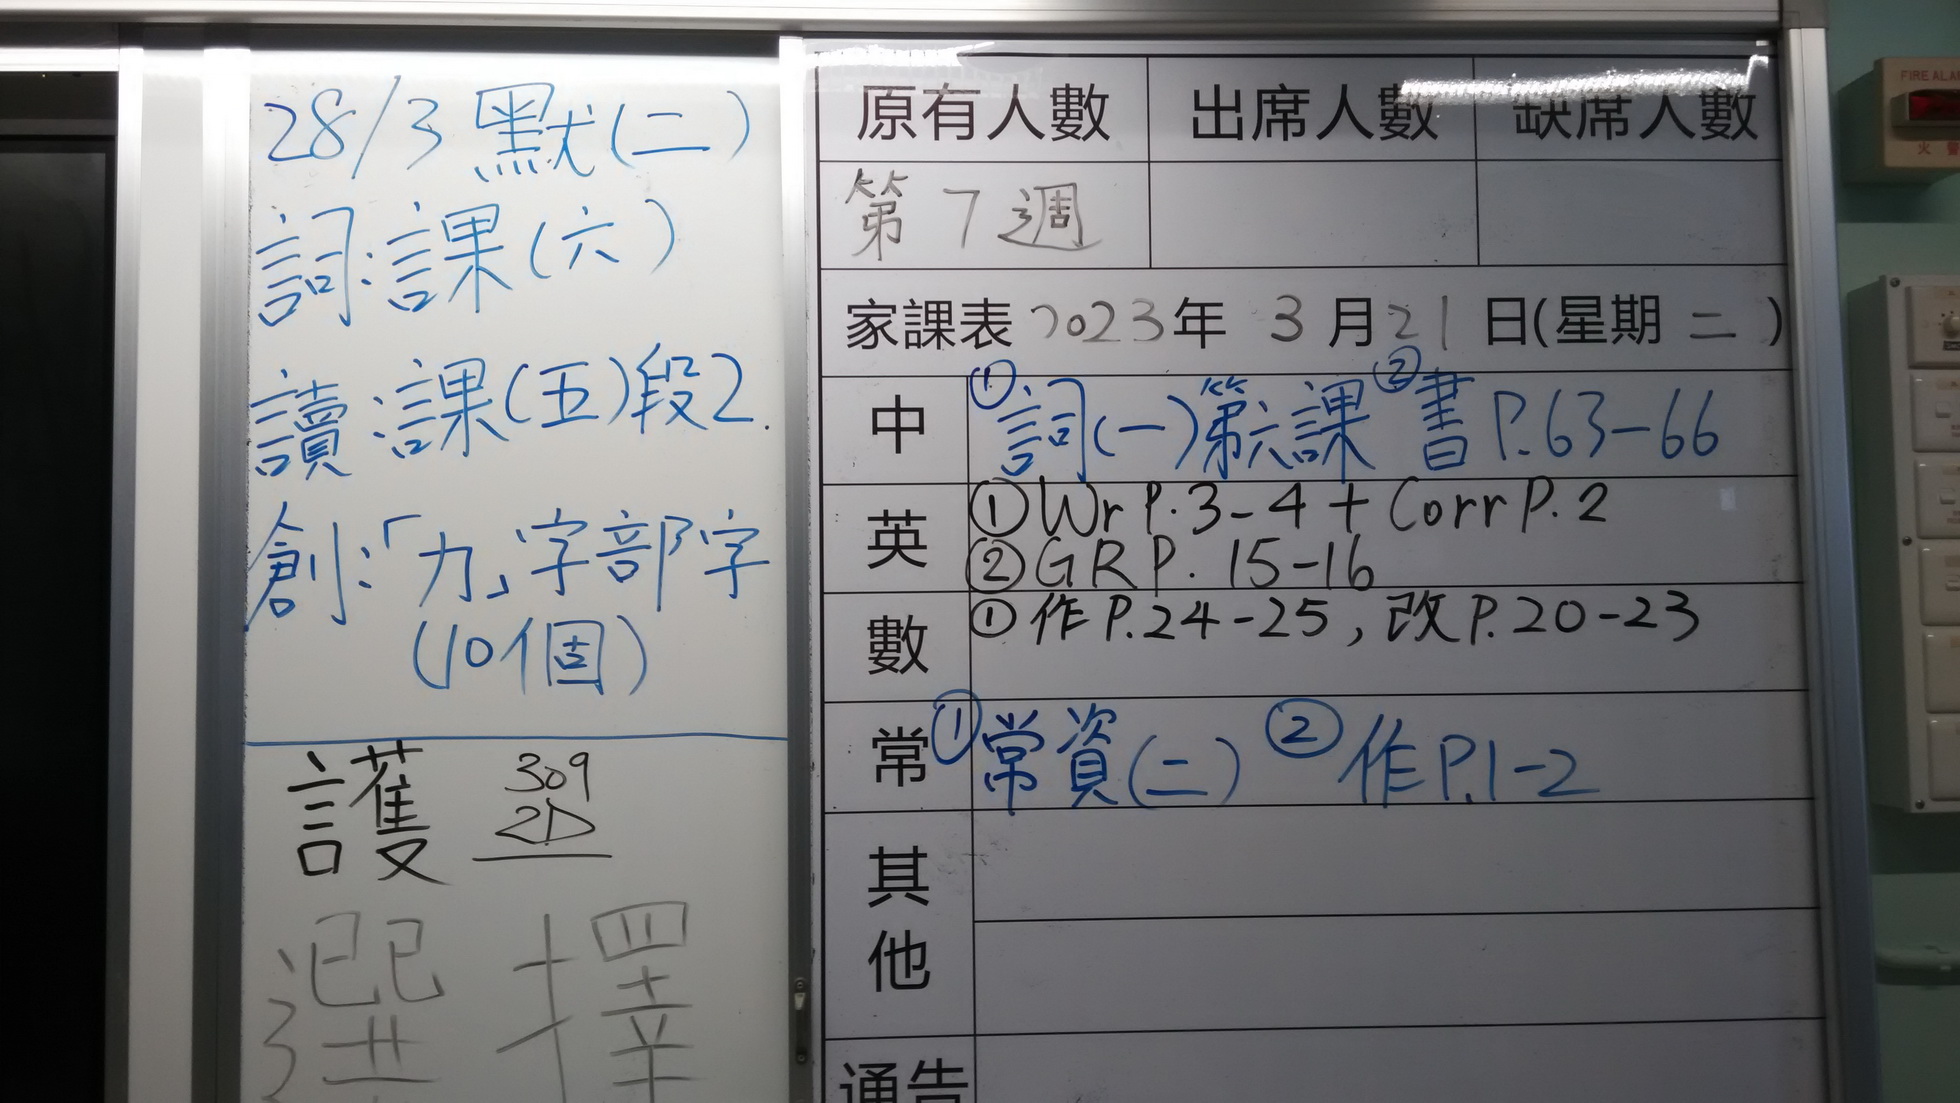 28/3 默(二)
詞:課(六)
讀:課(五)段2.
創:「力」字部字
(10個)
護 309
2D
選擇
原有人數 出席人數 缺席人數
第7週
家課表 2023年 3月21日(星期二)
中 ①詞(一)第六課 ②書P.63-66
英 ①Wr P.3-4 + Corr P.2
②GR P. 15-16
數 ①作P.24-25, 改P.20-23
常 ①常資(二) ②作P.1-2
其他
通告
FIRE ALA
火警